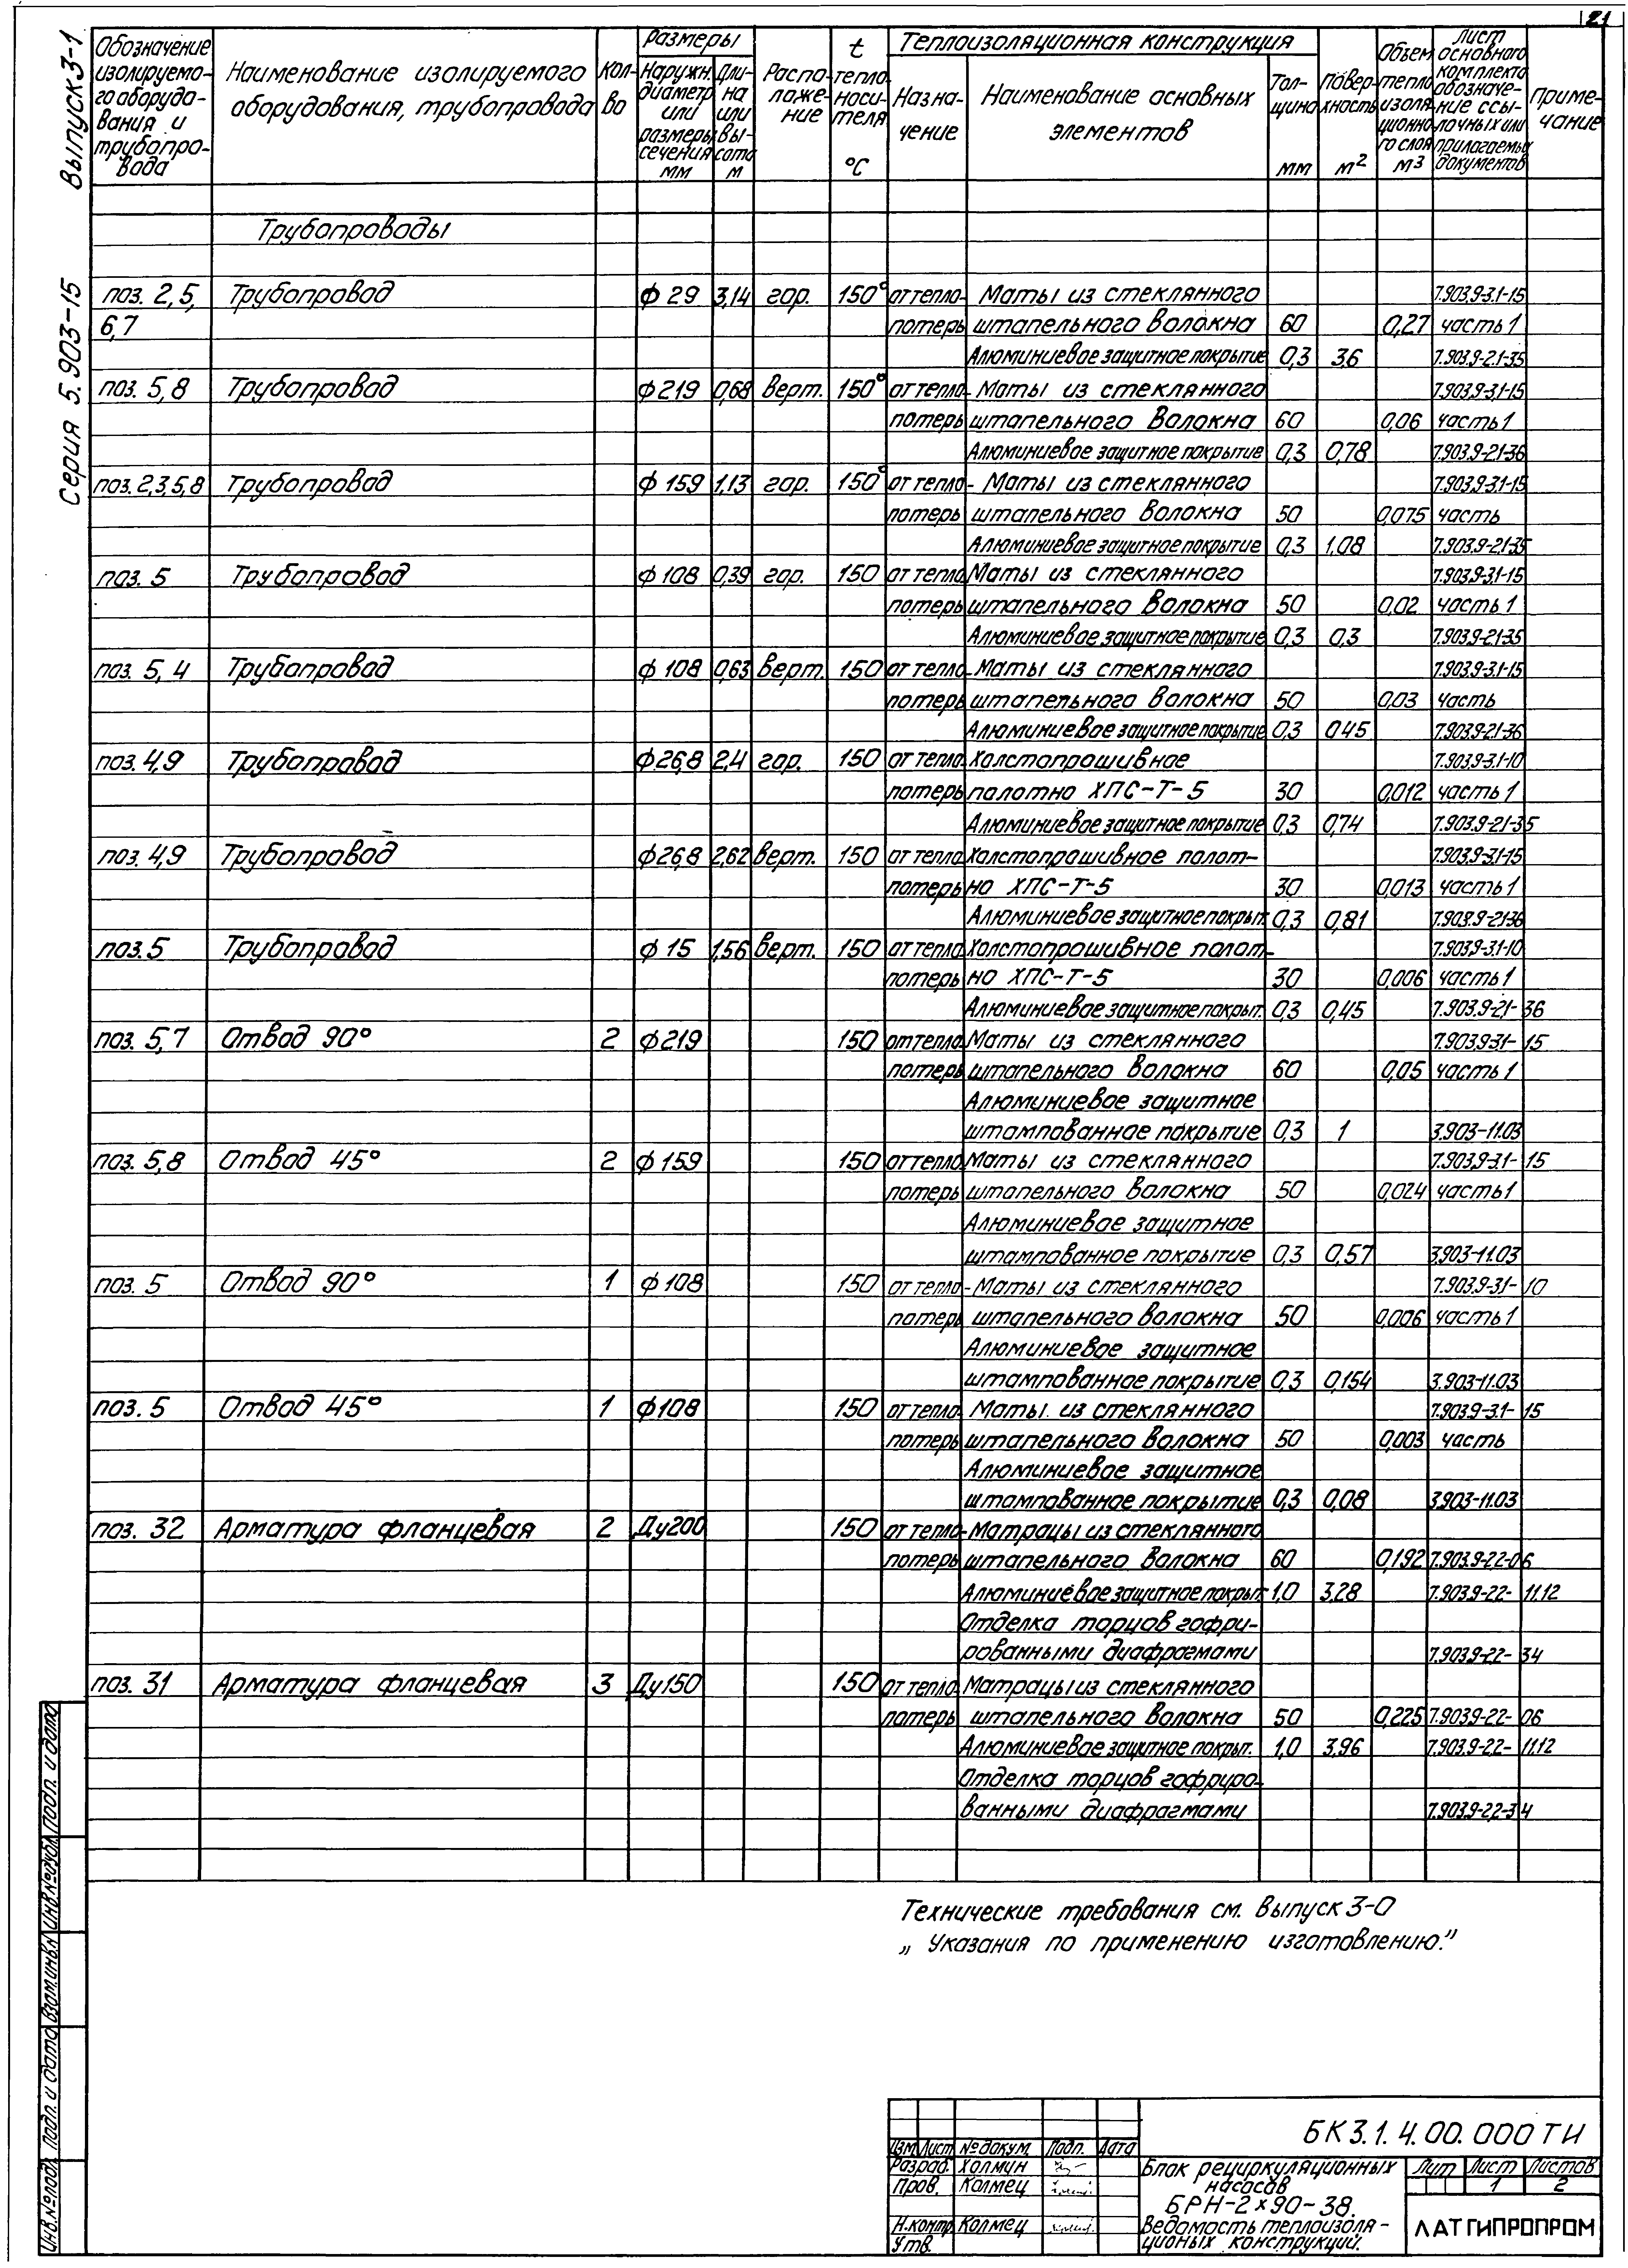 21
Выпуск 3-1
Серия 5.903-15
Обозначение изолируемого оборудования и трубопровода
Наименование изолируемого оборудования, трубопровода
Кол-во
Размеры
Наружн. диаметр или размеры сечения мм
Длина или высота м
Расположение
t теплоносителя °С
Теплоизоляционная конструкция
Назначение
Наименование основных элементов
Толщина мм
Поверхность м²
Объем теплоизоляционного слоя м³
Лист основного комплекта обозначение ссылочных или прилагаемых документов
Примечание
Трубопроводы
поз. 2,5, Трубопровод ф 29 3,14 гор. 150° от тепло- Маты из стеклянного 7.903.9-3.1-15
6,7 потерь штапельного волокна 60 0,27 часть 1
Алюминиевое защитное покрытие 0,3 3,6 7.903.9-2.1-35
поз. 5,8 Трубопровод ф 219 0,68 верт. 150° от тепло- Маты из стеклянного 7.903.9-3.1-15
потерь штапельного волокна 60 0,06 часть 1
Алюминиевое защитное покрытие 0,3 0,78 7.903.9-2.1-36
поз. 2,3,5,8 Трубопровод ф 159 1,13 гор. 150° от тепло- Маты из стеклянного 7.903.9-3.1-15
потерь штапельного волокна 50 0,075 часть
Алюминиевое защитное покрытие 0,3 1,08 7.903.9-2.1-35
поз. 5 Трубопровод ф 108 0,39 гор. 150 от тепло Маты из стеклянного 7.903.9-3.1-15
потерь штапельного волокна 50 0,02 часть 1
Алюминиевое защитное покрытие 0,3 0,3 7.903.9-2.1-35
поз. 5,4 Трубопровод ф 108 0,63 верт. 150 от тепло- Маты из стеклянного 7.903.9-3.1-15
потерь штапельного волокна 50 0,03 часть
Алюминиевое защитное покрытие 0,3 0,45 7.903.9-2.1-36
поз. 4,9 Трубопровод ф 26,8 2,4 гор. 150 от тепло Холстопрошивное 7.903.9-3.1-10
потерь полотно ХПС-Т-5 30 0,012 часть 1
Алюминиевое защитное покрытие 0,3 0,74 7.903.9-2.1-35
поз. 4,9 Трубопровод ф 26,8 2,62 верт. 150 от тепло Холстопрошивное полот- 7.903.9-3.1-15
потерь но ХПС-Т-5 30 0,013 часть 1
Алюминиевое защитное покрыт. 0,3 0,81 7.903.9-2.1-36
поз. 5 Трубопровод ф 15 1,56 верт. 150 от тепло Холстопрошивное полот- 7.903.9-3.1-10
потерь но ХПС-Т-5 30 0,006 часть 1
Алюминиевое защитное покрыт. 0,3 0,45 7.903.9-2.1-36
поз. 5,7 Отвод 90° 2 ф 219 150 от тепло Маты из стеклянного 7.903.9-3.1-15
потерь штапельного волокна 60 0,05 часть 1
Алюминиевое защитное
штампованное покрытие 0,3 1 3.903-11.03
поз. 5,8 Отвод 45° 2 ф 159 150 от тепло Маты из стеклянного 7.903.9-3.1-15
потерь штапельного волокна 50 0,024 часть 1
Алюминиевое защитное
штампованное покрытие 0,3 0,57 3.903-11.03
поз. 5 Отвод 90° 1 ф 108 150 от тепло- Маты из стеклянного 7.903.9-3.1-10
потерь штапельного волокна 50 0,006 часть 1
Алюминиевое защитное
штампованное покрытие 0,3 0,154 3.903-11.03
поз. 5 Отвод 45° 1 ф 108 150 от тепло Маты из стеклянного 7.903.9-3.1-15
потерь штапельного волокна 50 0,003 часть
Алюминиевое защитное
штампованное покрытие 0,3 0,08 3.903-11.03
поз. 32 Арматура фланцевая 2 Ду200 150 от тепло- Матрацы из стеклянного
потерь штапельного волокна 60 0,192 7.903.9-2.2-06
Алюминиевое защитное покрыт. 1,0 3,28 7.903.9-2.2-11.12
Отделка торцов гофри-
рованными диафрагмами 7.903.9-2.2-34
поз. 31 Арматура фланцевая 3 Ду150 150 от тепло Матрацы из стеклянного
потерь штапельного волокна 50 0,225 7.903.9-2.2-06
Алюминиевое защитное покрыт. 1,0 3,96 7.903.9-2.2-11.12
Отделка торцов гофриро-
ванными диафрагмами 7.903.9-2.2-34
Технические требования см. выпуск 3-0
„Указания по применению изготовлению."
Инв.№подл. Подп. и дата Взам.инв.№ Инв.№дубл. Подп. и дата
БК 3.1.4.00.000 ТИ
Изм Лист № докум. Подп. Дата
Разраб. Холмин
Пров. Колмец
Н.контр Колмец
Утв.
Блок рециркуляционных
насосов
БРН-2×90-38.
Ведомость теплоизоля-
ционых конструкций.
Лит Лист Листов
1 2
ЛАТГИПРОПРОМ